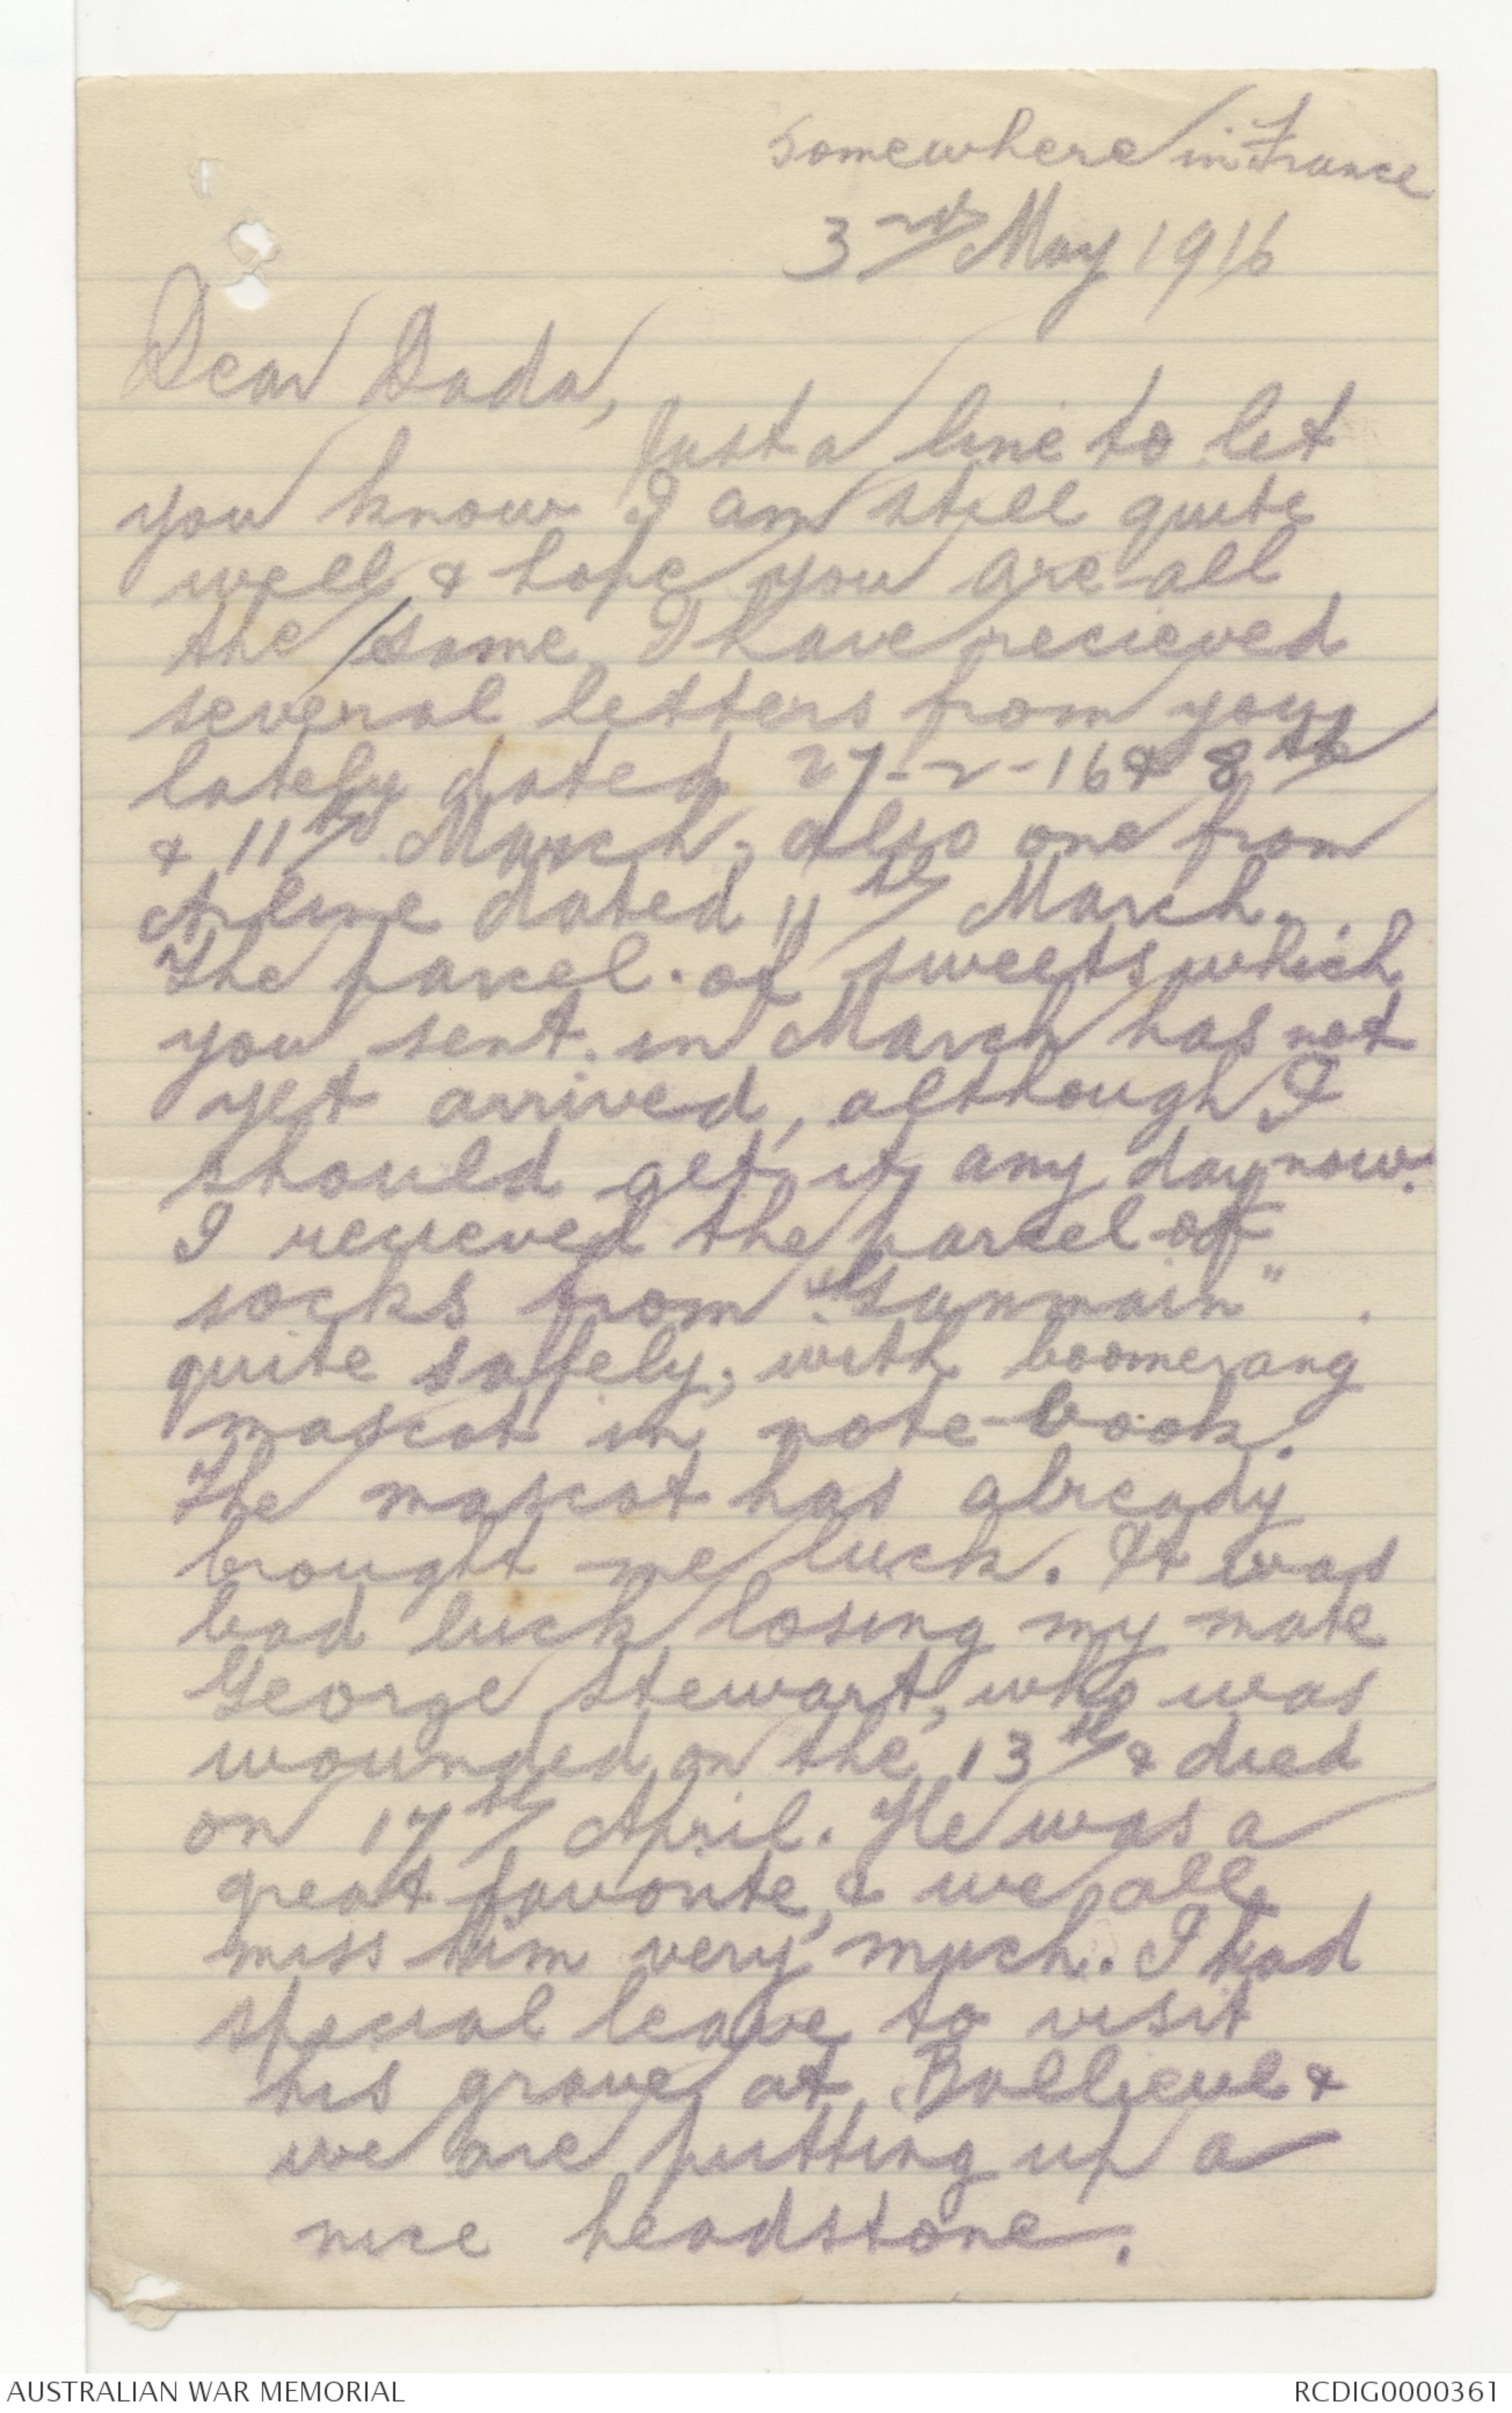 Somewhere in France
3rd May 1916
Dear Dada,
Just a line to let
you know I am still quite
well & hope you are all
the same. I have recieved
several letters from you
lately dated 27-2-16 & 8th
& 11th March, also one from
Arline dated 11th March.
The parcel of sweets which
you sent in March has not
yet arrived, although I
should get it any day now.
I recieved the parcel of
socks from "Ganmain"
quite saffely, with boomerang
mascot in note-book.
The mascot has already
brought me luck. It was
bad luck losing my mate
George Stewart, who was
wounded on the 13th & died
on 17th April. He was a
great favorite, & we all
miss him very much. I had
special leave to visit
his grave at Ballieul &
we are putting up a
nice headstone.
AUSTRALIAN WAR MEMORIAL
RCDIG0000361